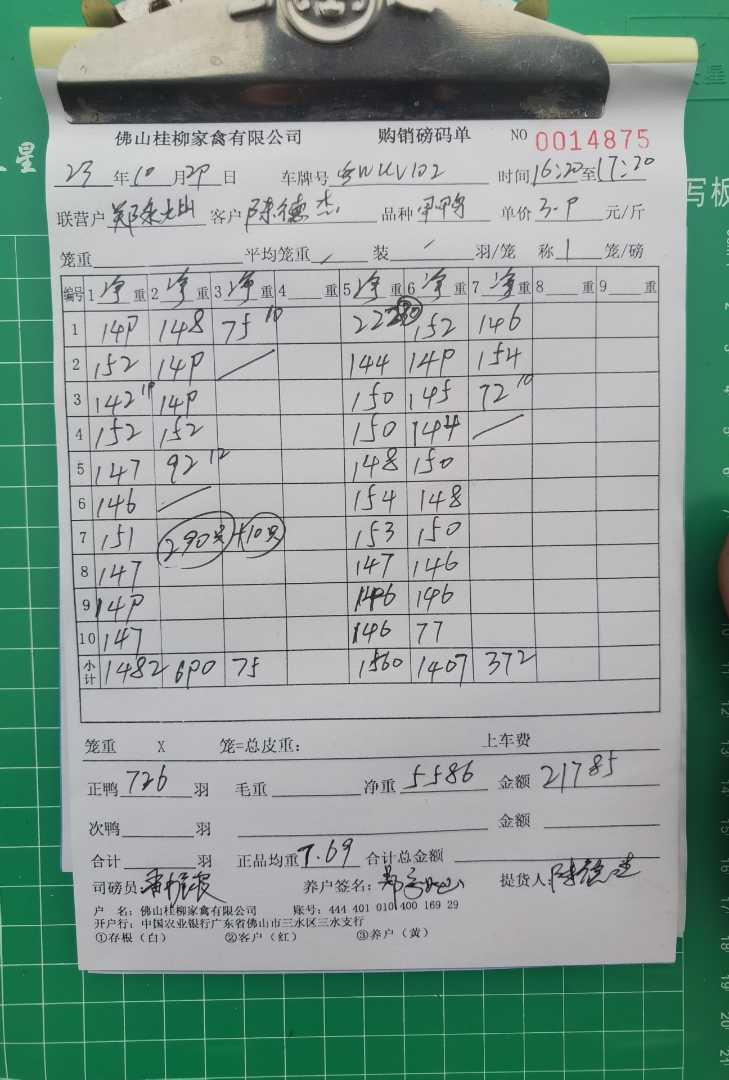 佛山桂柳家禽有限公司 购销磅码单 NO 0014875
23 年 10 月 29 日 车牌号 WUV102 时间 16:20 至 17:20
联营户 客户 陈德杰 品种 甲鸭 单价 3.9 元/斤
笼重 平均笼重 / 装 / 羽/笼 称 1 笼/磅
编号 1 净 重 2 净 重 3 净 重 4 重 5 净 重 6 净 重 7 净 重 8 重 9 重
1 149 148 75 10 222 30 152 146
2 152 149 / 144 149 154
3 142 19 149 150 145 72 10
4 152 152 150 144 /
5 147 92 12 148 150
6 146 / 154 148
7 151 290只 +10只 153 150
8 147 147 146
9 149 146 146
10 147 146 77
小计 1482 690 75 1560 1407 372
笼重 X 笼=总皮重: 上车费
正鸭 726 羽 毛重 净重 5586 金额 21785
次鸭 羽 金额
合计 羽 正品均重 7.69 合计总金额
司磅员: 养户签名: 提货人: 陈德杰
户 名: 佛山桂柳家禽有限公司 账号: 444 401 010 400 169 29
开户行: 中国农业银行广东省佛山市三水区三水支行
①存根（白） ②客户（红） ③养户（黄）
星
写板